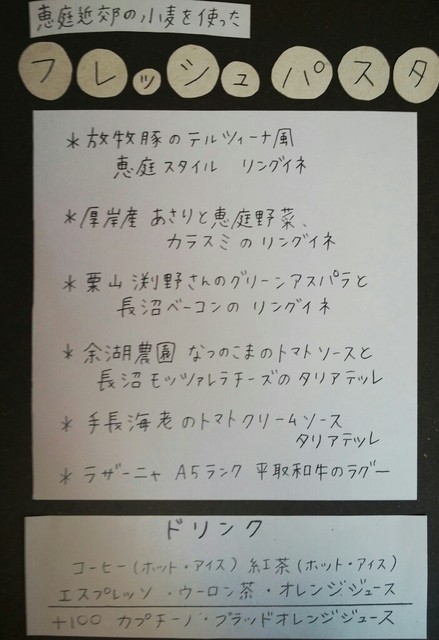 恵庭近郊の小麦を使った
フレッシュパスタ
＊放牧豚のテルツィーナ風
恵庭スタイル リングイネ
＊厚岸産 あさりと恵庭野菜、
カラスミのリングイネ
＊栗山 渕野さんのグリーンアスパラと
長沼ベーコンの リングイネ
＊余湖農園 なつのこまのトマトソースと
長沼モッツァレラチーズのタリアテッレ
＊手長海老のトマトクリームソース
タリアテッレ
＊ラザーニャ A5ランク 平取和牛のラグー
ドリンク
コーヒー(ホット・アイス) 紅茶(ホット・アイス)
エスプレッソ・ウーロン茶・オレンジジュース
+100 カプチーノ・ブラッドオレンジジュース